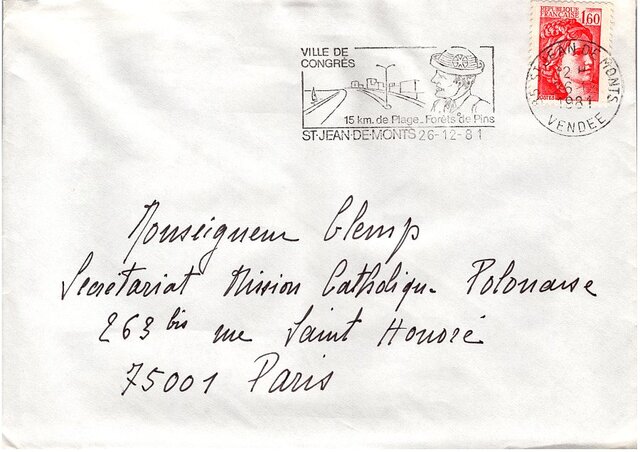 VILLE DE
CONGRÈS
15 km. de Plage. Forêts de Pins
ST-JEAN-DE-MONTS 26-12-81
REPUBLIQUE
FRANÇAISE 1,60
ST JEAN DE MONTS
1981
VENDEE
Monseigneur Glemp
Secrétariat Mission Catholique Polonaise
263 bis rue Saint Honoré
75001 Paris